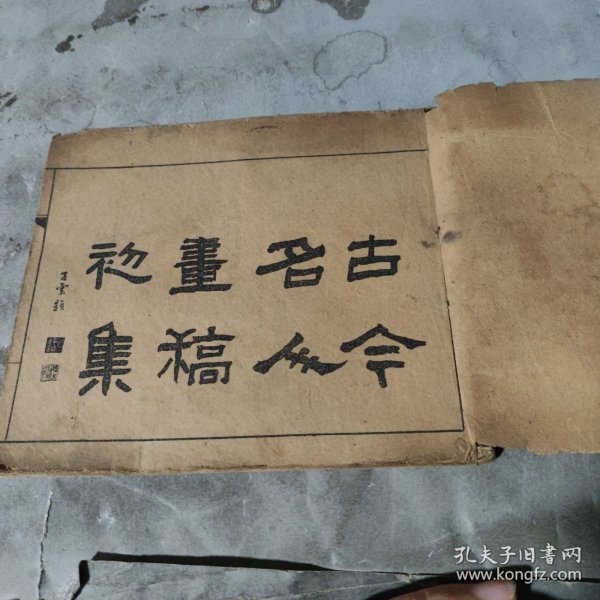 古今
名人
畫稿
初集
孔夫子旧書网
www.kongfz.com